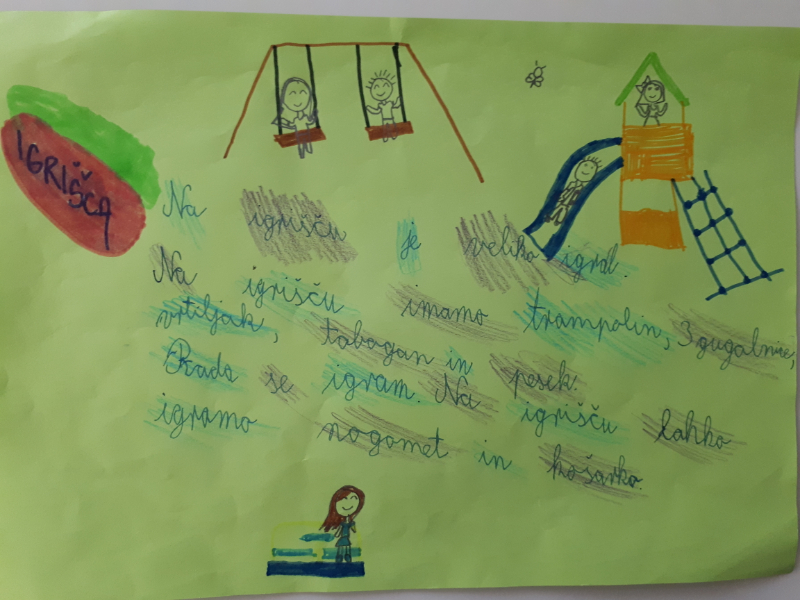 IGRIŠČA
Na igrišču je veliko igral.
Na igrišču imamo trampolin, 3 gugalnice,
vrtiljak, tobogan in pesek.
Rada se igram. Na igrišču lahko
igramo nogomet in košarko.